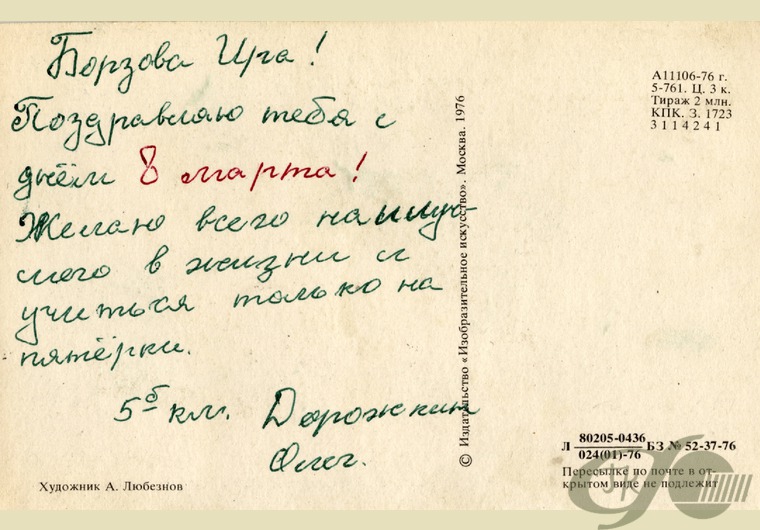 Борзова Ира!
Поздравляю тебя с
днём 8 марта!
Желаю всего наилуч-
шего в жизни и
учиться только на
пятёрки.
5б кл. Дорожкин
Олег.
Художник А. Любезнов
© Издательство «Изобразительное искусство». Москва. 1976
А11106-76 г.
5-761. Ц. 3 к.
Тираж 2 млн.
КПК. З. 1723
3114241
Л 80205-0436 БЗ № 52-37-76
024(01)-76
Пересылке по почте в от-
крытом виде не подлежит